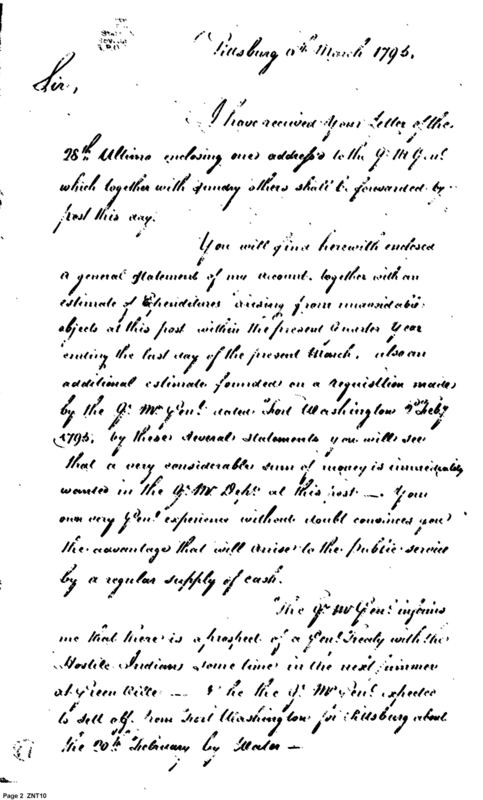 Pittsburg March 1795.
Sir,
I have received your Letter of the
28th Ultimo enclosing one address to the Qr Mr Genl
which together with sundry others shall be forwarded by
post this day.
You will find herewith enclosed
a general statement of my account, together with an
estimate of Expenditures arising from unavoidable
objects at this post within the present Quarter Year
ending the last day of the present March, also an
additional estimate founded on a requisition made
by the Qr Mr Genl dated Fort Washington Feby
1795. by these several statements you will see
that a very considerable sum of money is immediately
wanted in the Qr Mr Dept at this post — Your
own very Genl experience without doubt convinces you
the advantage that will arise to the public service
by a regular supply of cash.
The Qr Mr Genl informs
me that there is a prospect of a Genl Treaty with the
Hostile Indians some time in the next summer
at Green Ville — & he the Qr Mr Genl expected
to sett off from Fort Washington for Pittsburg about
the 20th February by Water —
Page 2 ZNT10